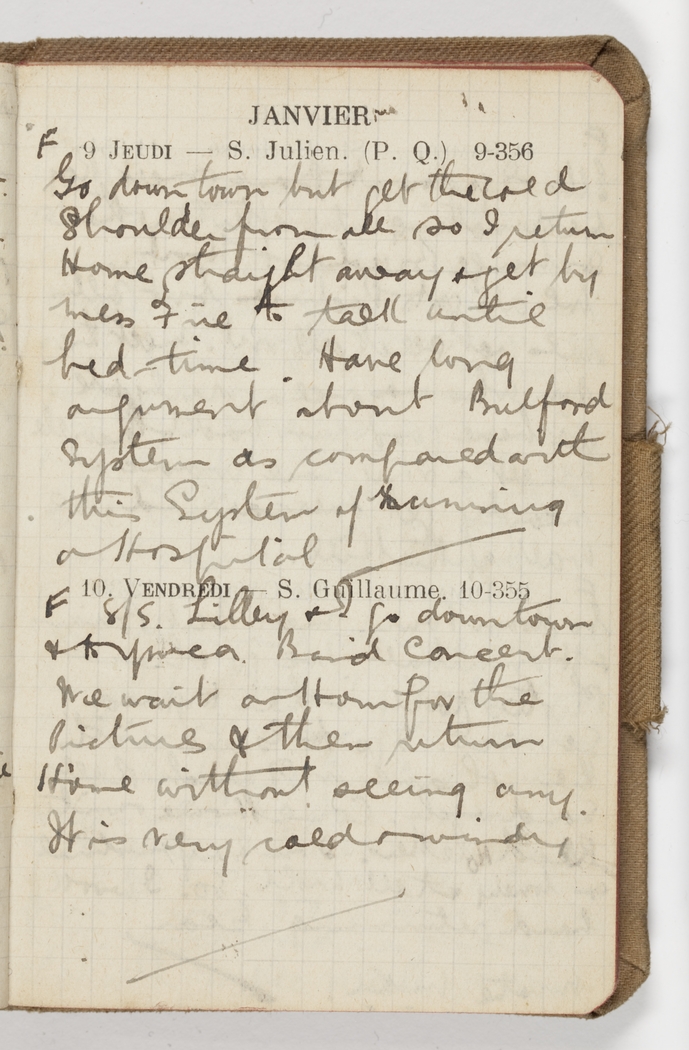 JANVIER
F 9 JEUDI — S. Julien. (P. Q.) 9-356
Go down town but get the cold
Shoulder from all so I return
Home straight away & get by
mess Fire to talk until
bed-time. Have long
argument about Bulford
System as compared with
this System of running
a Hospital
10. VENDREDI — S. Guillaume. 10-355
F S/S. Lilley & I go downtown
& to Band Concert.
We wait an Hour for the
Pictures & then return
Home without seeing any.
It is very cold & windy